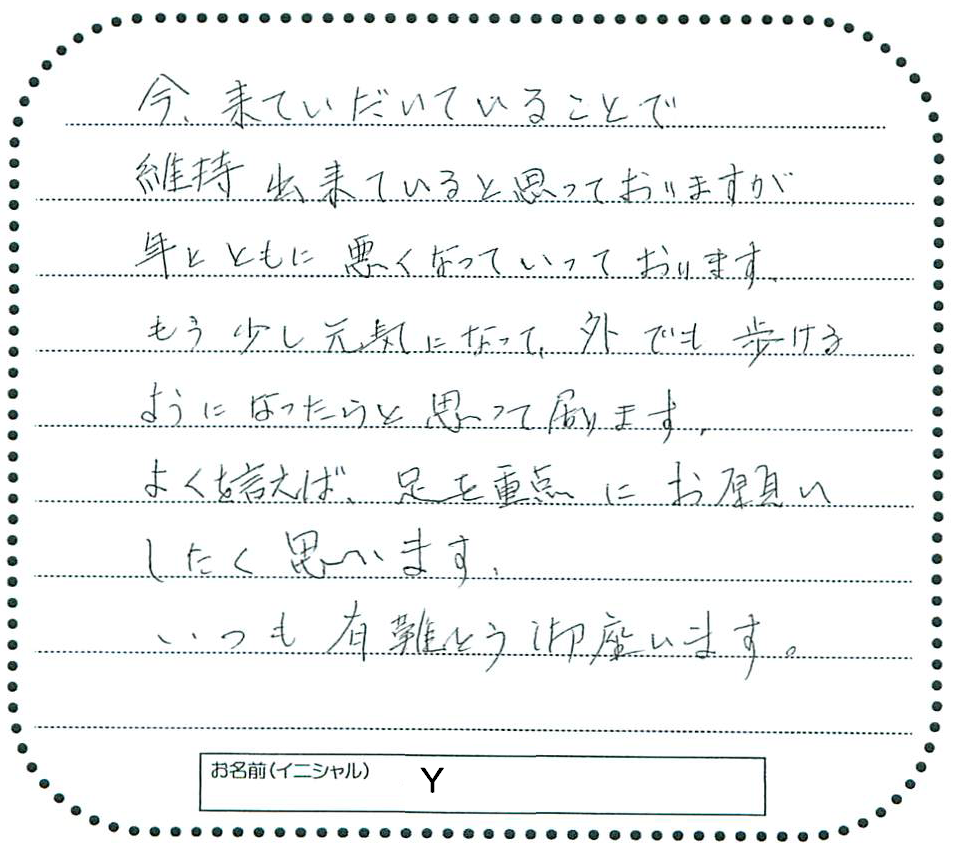 今、来ていだいていることで
維持出来ていると思っておりますが
年とともに悪くなっていっております。
もう少し元気になって、外でも歩ける
ようになったらと思って居ります。
よくを言えば、足を重点にお願い
したく思います。
いつも有難とう御座います。
お名前(イニシャル) Y